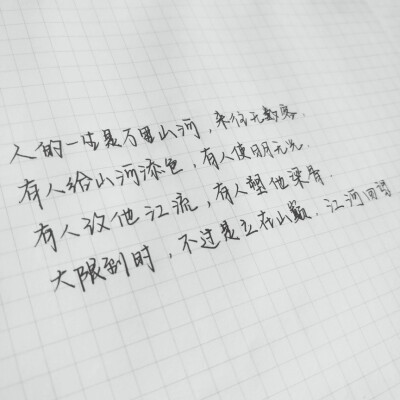 人的一生是万里山河，来往无数客.
有人给山河添色，有人使日月无光.
有人改他江流，有人塑他梁骨.
大限到时，不过是立在山巅.江河回望